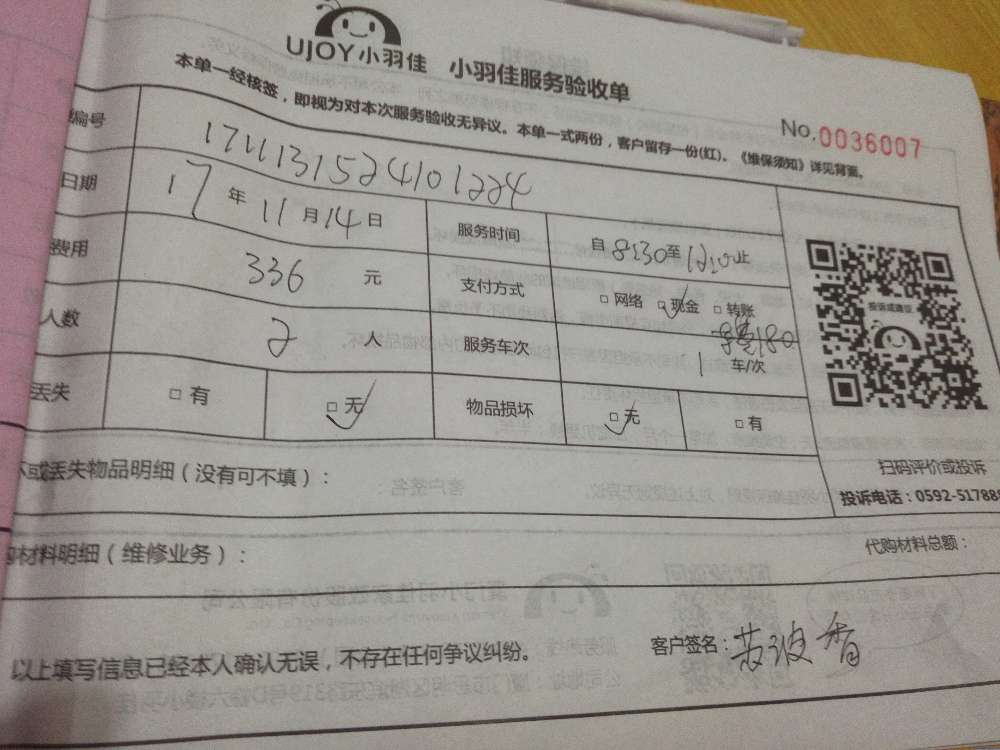 UJOY小羽佳 小羽佳服务验收单
本单一经核签，即视为对本次服务验收无异议。本单一式两份，客户留存一份(红)。《维保须知》详见背面。
No.0036007
编号 1711131524101224
日期 17年11月14日 服务时间 自8:30至12:10止
费用 336 元 支付方式 □网络 □现金 □转账
人数 2 人 服务车次 180 1 车/次
丢失 □有 □无 物品损坏 □无 □有
投诉或建议
扫码评价或投诉
投诉电话：0592-517888
坏或丢失物品明细（没有可不填）：
购材料明细（维修业务）： 代购材料总额：
以上填写信息已经本人确认无误，不存在任何争议纠纷。 客户签名：波香